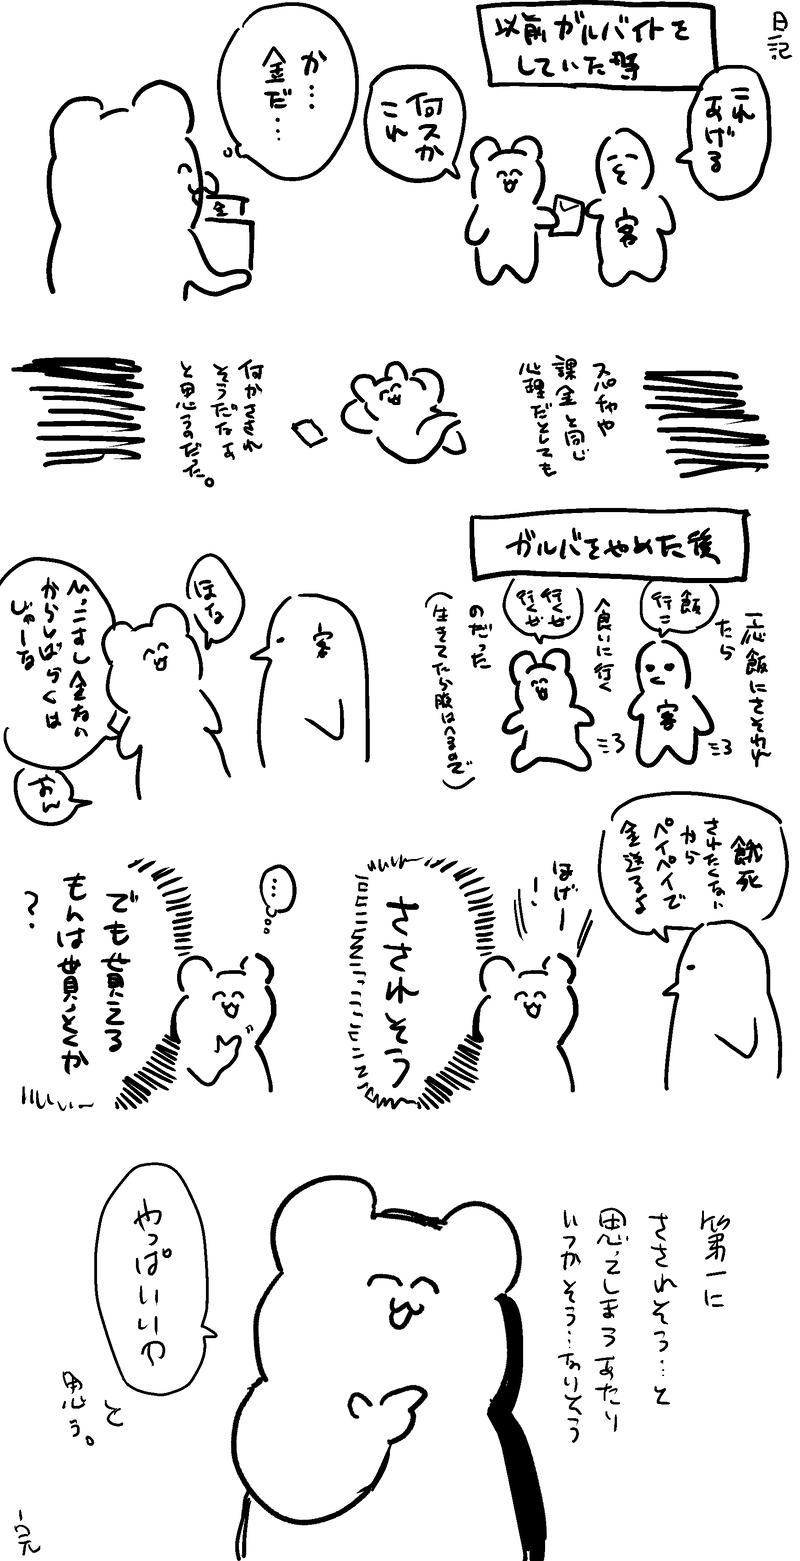 日記
以前ガルバイトを
していた時
これ
あげる
何スか
これ
客
か…
金だ…
金
スパチャや
課金と同じ
心理だとしても
何かさされ
そうだなぁ
と思うのだった。
ガルバをやめた後
一応飯にさそわれ
たら
飯
行こ
客
食いに行く
行くぜ
行くぜ
のだった
(生きてたら腹はへるので)
客
ほな
引っこすし金ない
からしばらくは
じゃーな
おん
餓死
されたくない
から
ペイペイで
金送るよ
ほげー
!
さされそう
…
でも貰える
もんは貰っとくか
?
第一に
さされそう…と
思ってしまうあたり
いつかそう…なりそう
やっぱいいや
と
思う。
完